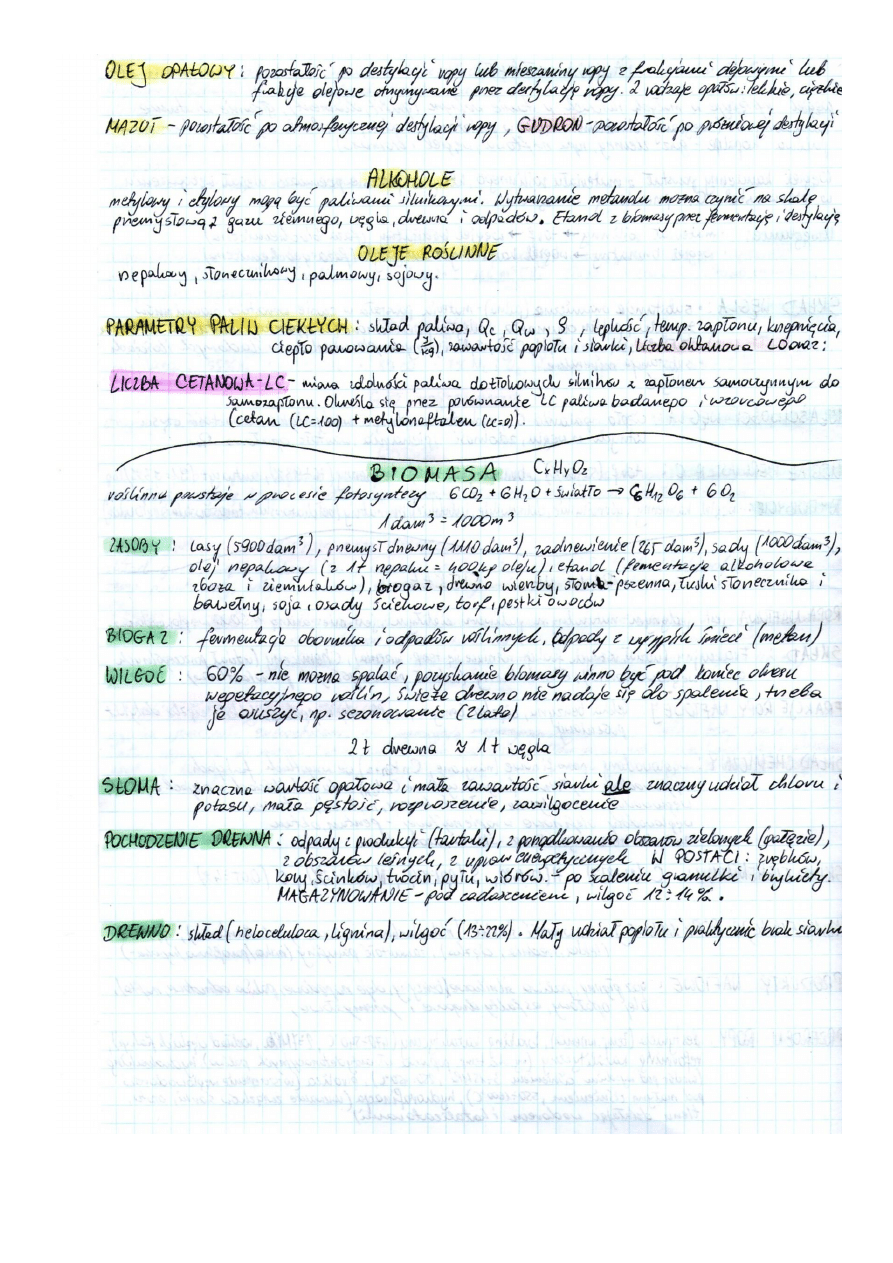 OLEJ OPAŁOWY : pozostałość po destylacji ropy lub mieszaniny ropy z frakcjami olejowymi lub
frakcje olejowe otrzymywane przez destylację ropy. 2 rodzaje opałów: lekkie, ciężkie
MAZUT - pozostałość po atmosferycznej destylacji ropy, GUDRON - pozostałość po próżniowej destylacji
ALKOHOLE
metylowy i etylowy mogą być paliwami silnikowymi. Wytwarzanie metanolu można czynić na skalę
przemysłową z gazu ziemnego, węgla, drewna i odpadów. Etanol z biomasy przez fermentację i destylację
OLEJE ROŚLINNE
rzepakowy, słonecznikowy, palmowy, sojowy.
PARAMETRY PALIW CIEKŁYCH : skład paliwa, Qc, Qw, ρ, lepkość, temp. zapłonu, krzepnięcia,
ciepło parowania (J/kg), zawartość popiołu i siarki, liczba oktanowa LO oraz:
LICZBA CETANOWA-LC - miara zdolności paliwa do tłokowych silników z zapłonem samoczynnym do
samozapłonu. Określa się przez porównanie LC paliwa badanego i wzorcowego
(cetan (LC=100) + metylonaftalen (LC=0)).
BIOMASA CxHyOz
roślinna powstaje w procesie fotosyntezy 6CO2 + 6H2O + światło → C6H12O6 + 6O2
1 dam³ = 1000m³
ZASOBY : lasy (5900dam³), przemysł drzewny (1110 dam³), zadrzewienie (265 dam³), sady (1000dam³),
olej rzepakowy (z 1t rzepaku = 400kg oleju), etanol (fermentacja alkoholowa
zboża i ziemniaków), biogaz, drewno wierzby, słoma pszenna, łuski słonecznika i
bawełny, soja, osady ściekowe, torf, pestki owoców
BIOGAZ : fermentacja obornika i odpadów roślinnych, odpady z wysypisk śmieci (metan)
WILGOĆ : 60% - nie można spalać, pozyskanie biomasy winno być pod koniec okresu
wegetacyjnego roślin, świeże drewno nie nadaje się do spalenia, trzeba
je suszyć, np. sezonowanie (2 lata)
2t drewna ≈ 1t węgla
SŁOMA : znaczna wartość opałowa i mała zawartość siarki ale znaczny udział chloru i
potasu, mała gęstość, rozproszenie, zawilgocenie
POCHODZENIE DREWNA : odpady z produkcji (tartaki), z porządkowania obszarów zielonych (gałęzie),
z obszarów leśnych, z upraw energetycznych W POSTACI : zrębków,
kory, ścinków, trocin, pyłu, wiórów. - po scaleniu granulki i brykiety.
MAGAZYNOWANIE - pod zadaszeniem, wilgoć 12÷14%.
DREWNO : skład (heloceluloza, lignina), wilgoć (13÷22%). Mały udział popiołu i praktycznie brak siarki